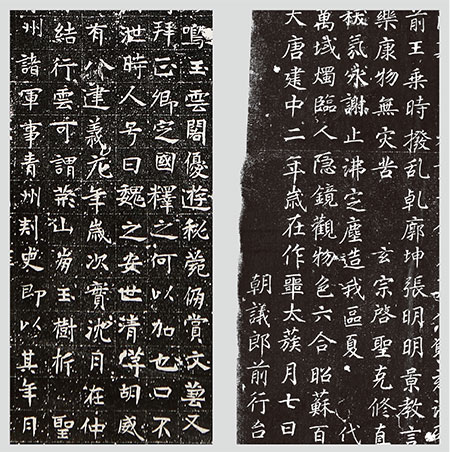 前王乘時撥乱乹廓坤張明明景教言
樂康物無灾苦 玄宗啓聖克修真
祆氛永謝止沸定塵造我區夏 代
萬域燭臨人隱鏡觀物色六合昭蘇百
大唐建中二年歲在作噩太蔟月七日
朝議郎前行台
鳴玉雲閣優遊秘菀賞文藝又
拜正卿定國釋之何以加也口不
泄時人号曰魏之安世清儁胡威
有八建義元年歲次實沈月在仲
結行雲可謂山崩玉樹析聖
州諸軍事青州刾史即以其年月